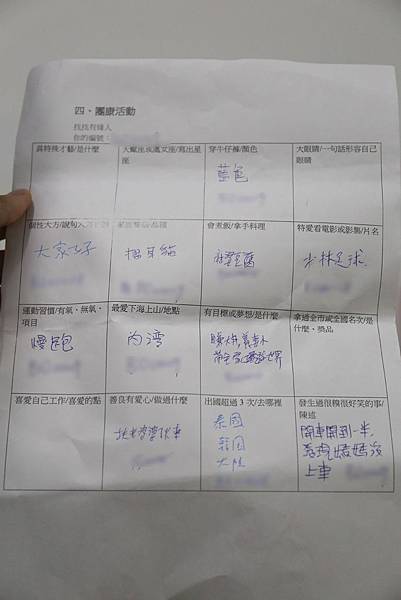 四、團康活動
找找有緣人
你的編號:
具特殊才藝/是什麼
天蠍座或處女座/寫出星座
穿牛仔褲/顏色
藍色
大眼睛/一句話形容自己眼睛
個性大方/說句
大家好
摺耳貓
會煮飯/拿手料理
特愛看電影或影集/片名
少林足球
運動習慣/有氧、無氧、項目
慢跑
最愛下海上山/地點
內湾
有目標或夢想/是什麼
拿過全市或全國名次/是什麼、獎品
喜愛自己工作/喜愛的點
善良有愛心/做過什麼
出國超過 3 次/去哪裡
泰國
韓國
大陸
發生過很糗很好笑的事/陳述
開車開到一半,
發現媽媽沒
上車